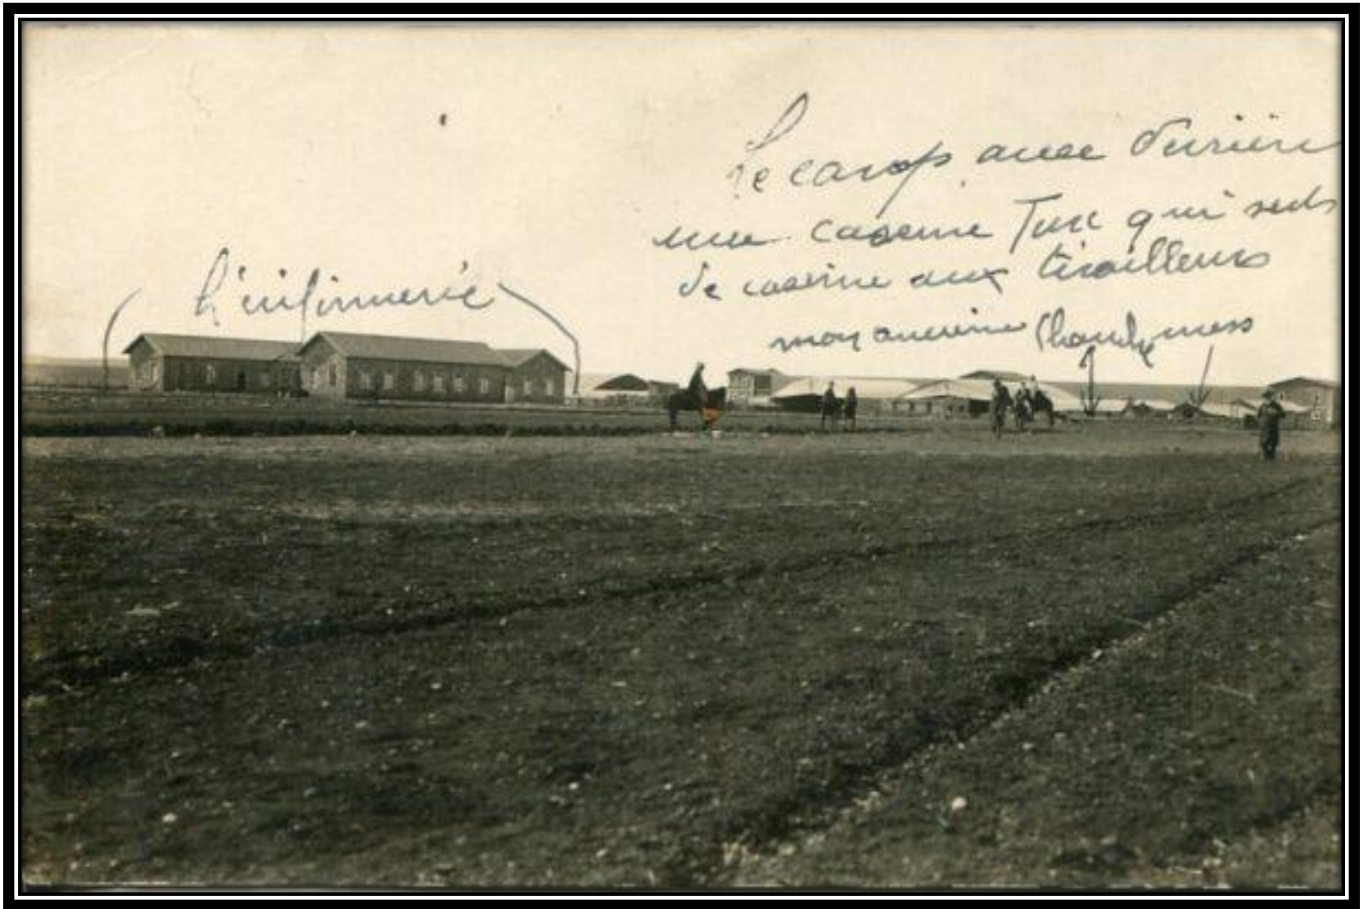 L'infirmerie
Le camp avec derrière
une caserne Turc qui sert
de caserne aux tirailleurs
mon ancienne chambre mess